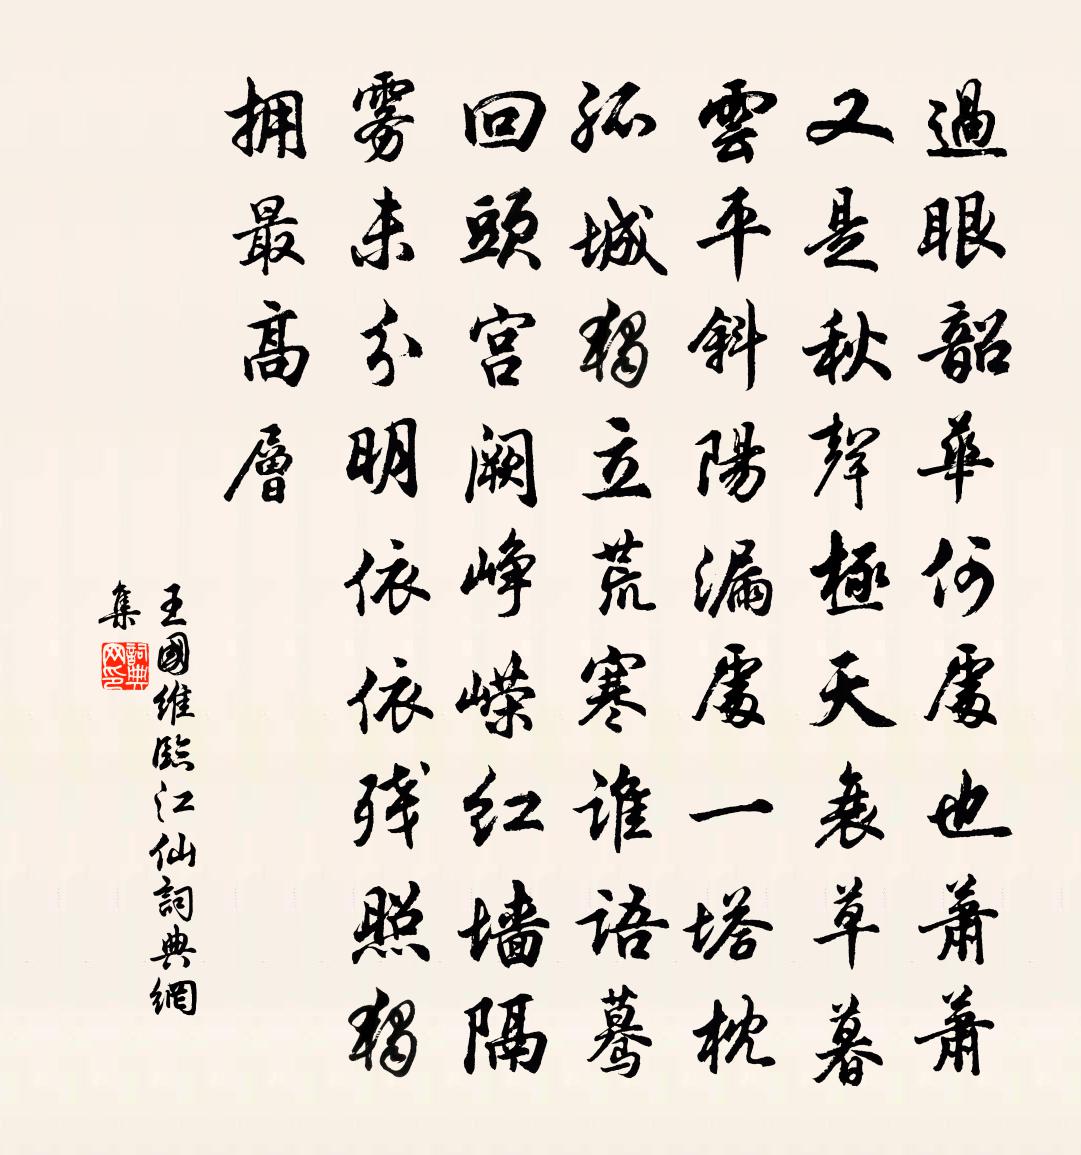 過眼韶華何處也蕭蕭
又是秋聲極天衰草暮
雲平斜陽漏處一塔枕
孤城獨立荒寒誰語驀
回頭宫闕崢嶸紅墙隔
雾未分明依依残照獨
拥最高層
王國維臨江仙詞典網
集
詞典网印